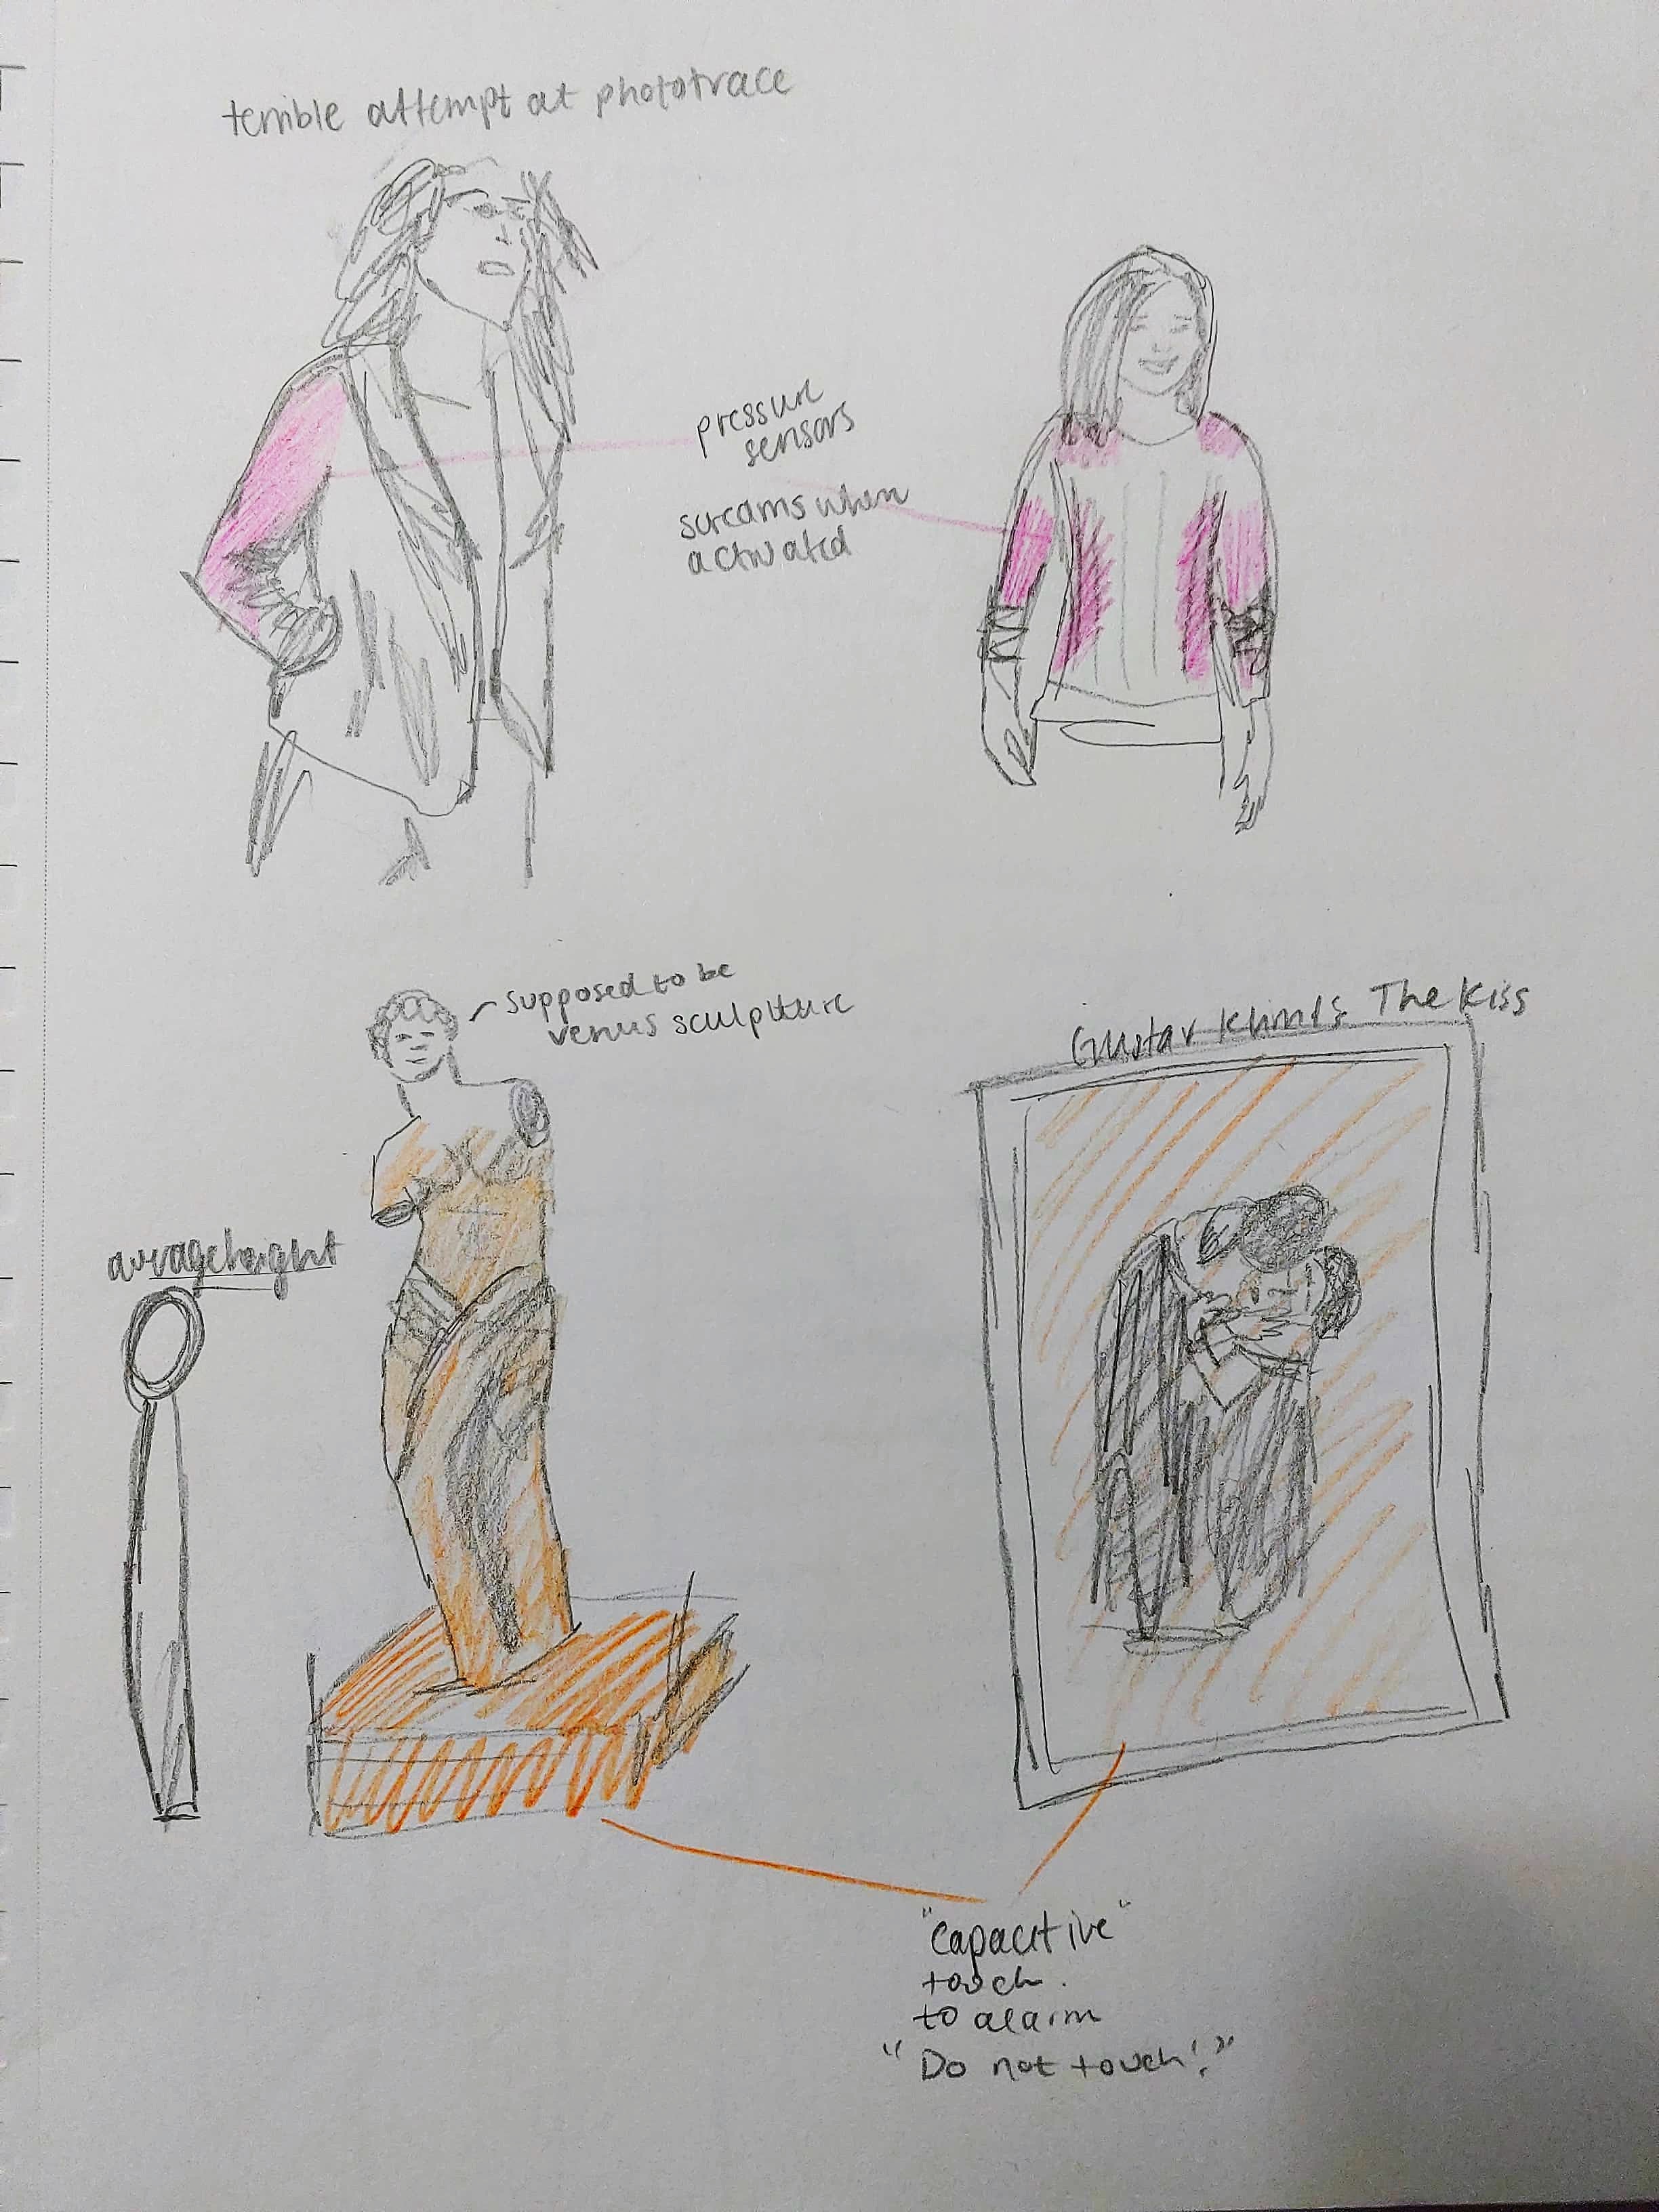 terrible attempt at phototrace
pressure
sensors
screams when
activated
supposed to be
venus sculpture
average height
Gustav Klimt's The Kiss
"Capacitive"
touch.
to alarm
"Do not touch!"